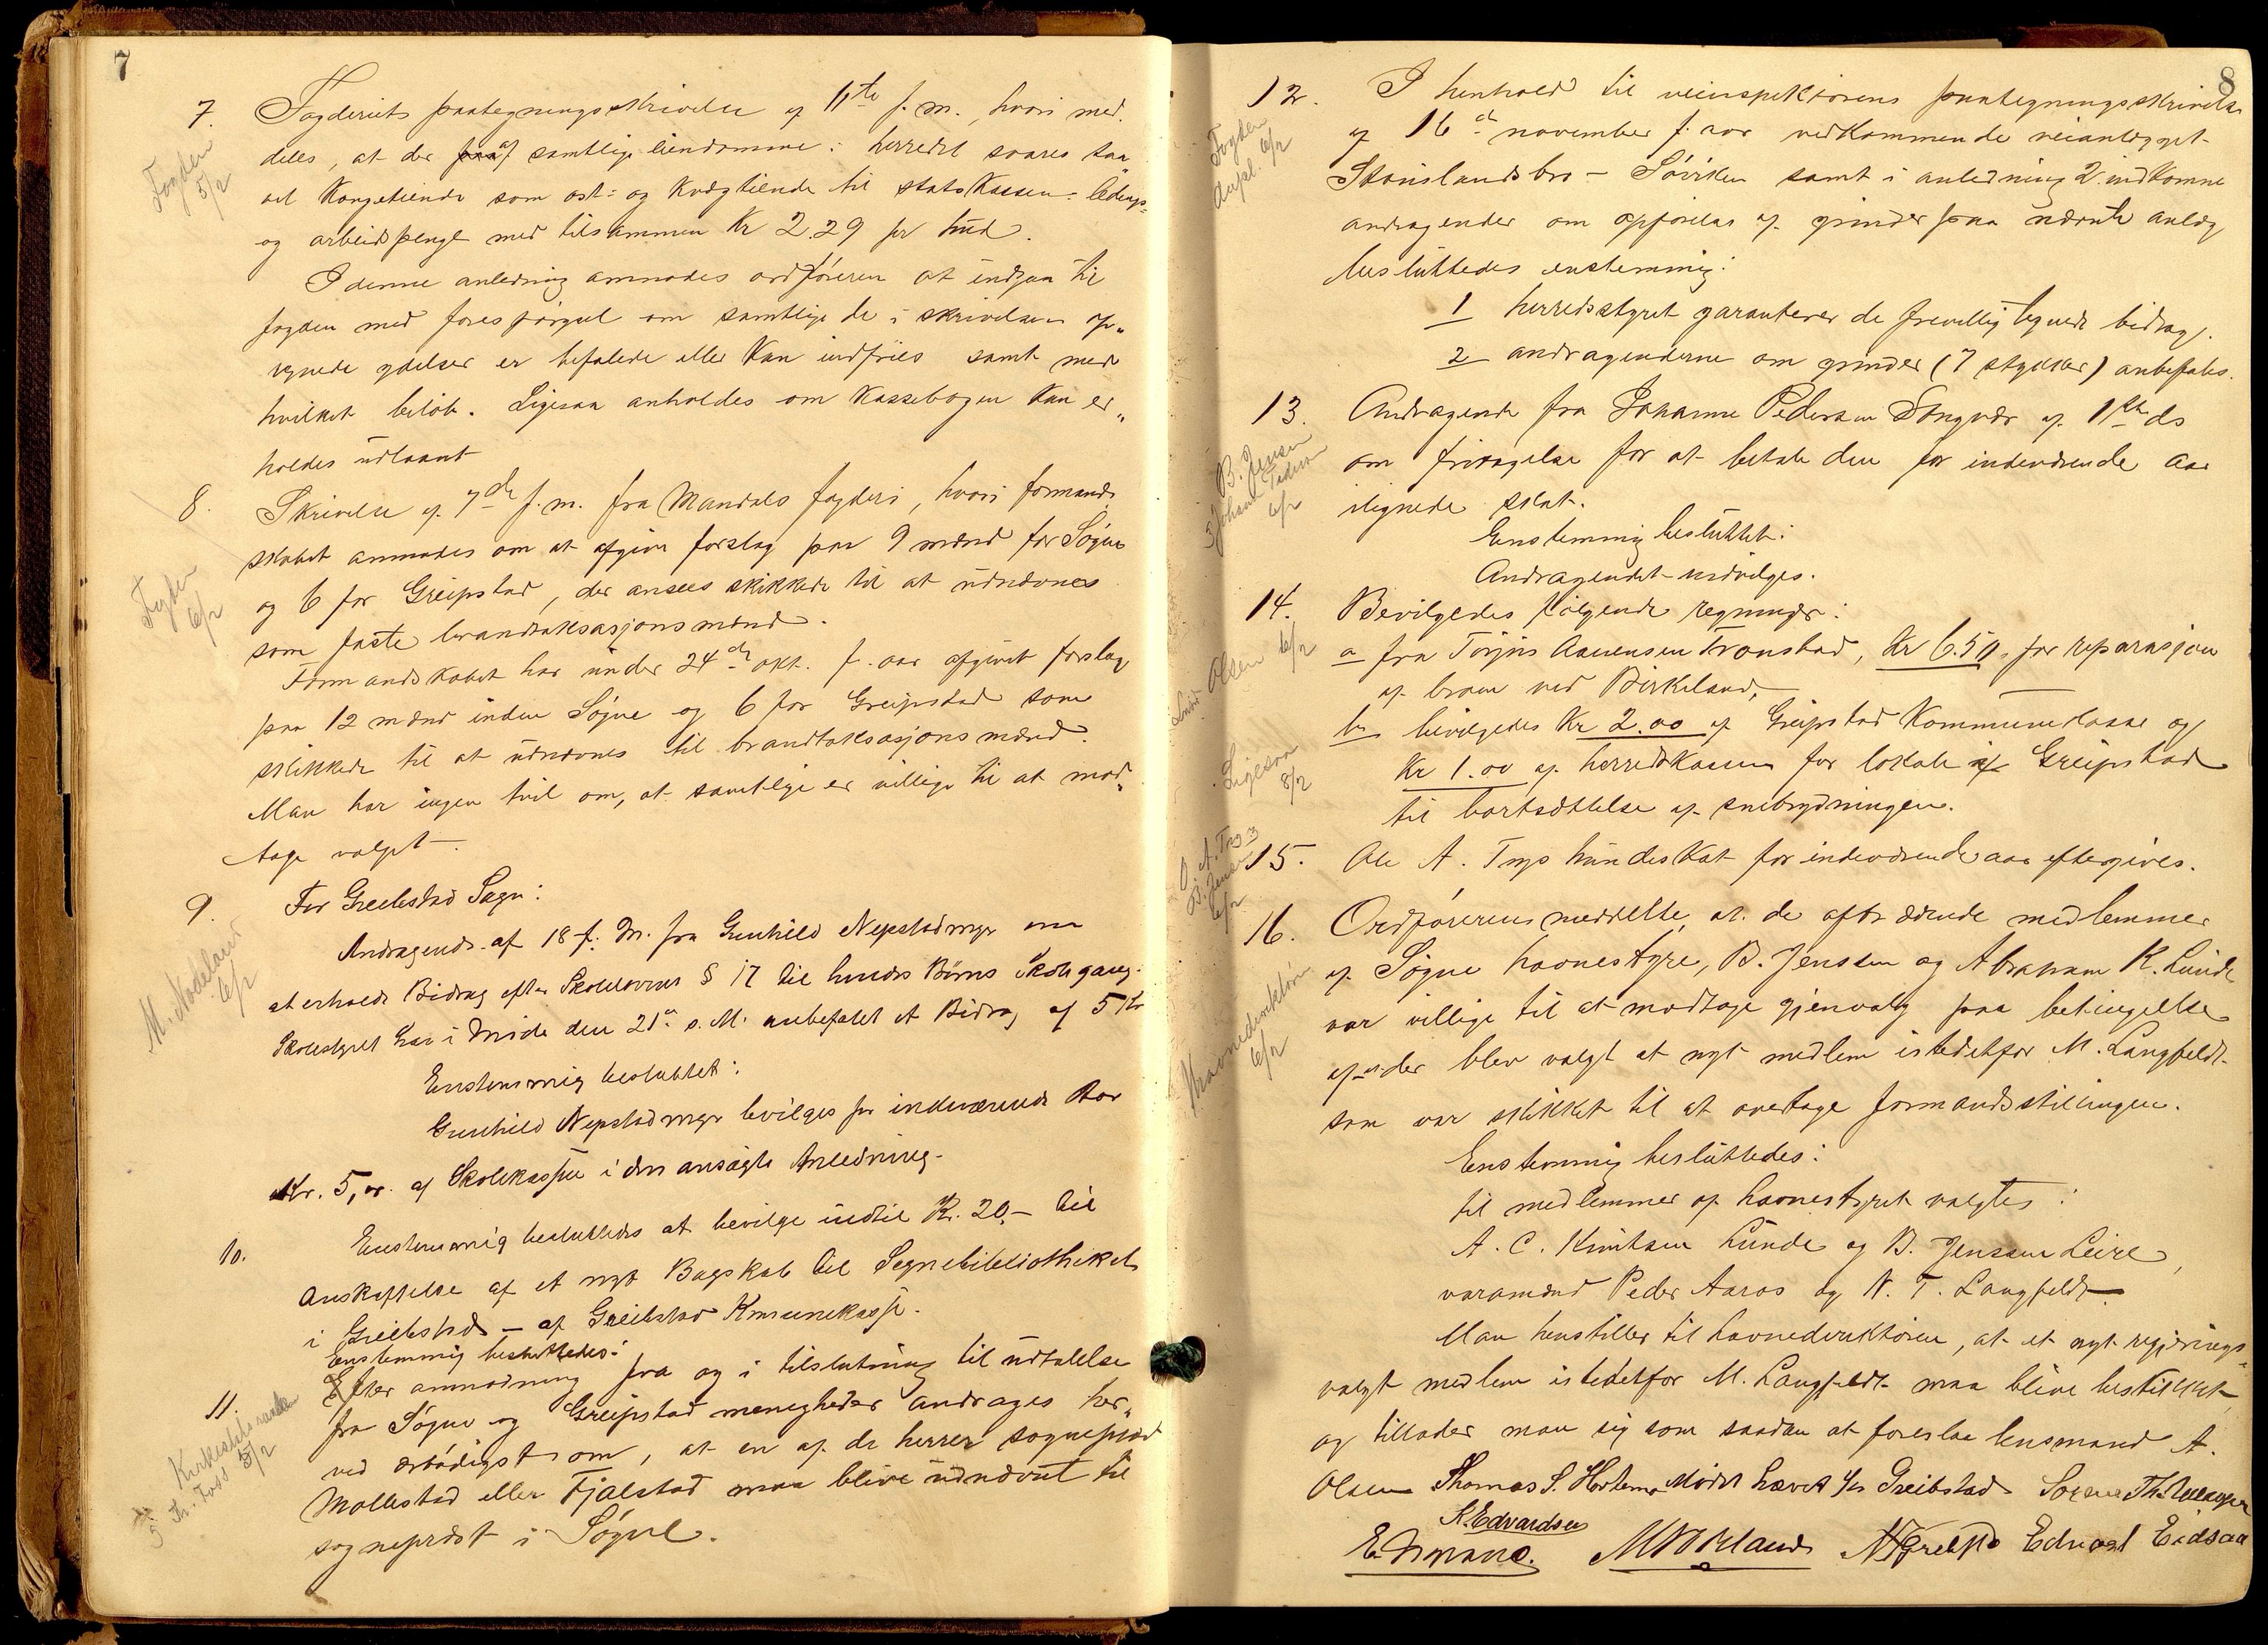 7
7. Fogderiets paategningsskrivelse af 11te f. m., hvori med,
deles, at der af samtlige eiendomme i herredet svares saa
vel Kongetiende som ost- og kvægtiende til statskassen
og arbeidspenge med tilsammen Kr 2.29 pr hud.
I denne anledning anmodes ordføreren at indgaa til
fogden med forespørgsel om samtlige de i skrivelsen op„
regnede ydelser er befalede eller kan indfries samt med
hvilket beløb. Ligesaa anholdes om kassebogen kan er„
holdes udlaant
Fogden
5/2
8. Skrivelse af 7de f. m. fra Mandals fogderi, hvori formand,
skabet anmodes om at afgive forslag paa 9 mænd for Søgne
og 6 for Greipstad, der ansees skikkede til at udnævnes
som faste brandtaksasjonsmænd.
Fogden
6/2
Formandskabet har under 24de okt. f. aar afgivet forslag
paa 12 mænd inden Søgne og 6 for Greipstad som
skikkede til at udnævnes til brandtaksasjonsmænd.
Man har ingen tvil om, at samtlige er villige til at mod„
tage valget.
9. For Greibstad Sogn:
Andragende af 18 f. M. fra Gunhild Nepstadmyr om
at erholde Bidrag efter Skoleloven § 17 til hendes Børns Skolegang.
Skolestyret har i Møde den 21de s. M. anbefalet et Bidrag af 5 Kr
M. Nodeland
6/2
Enstemmig besluttet:
Gunhild Nepstadmyr bevilges for indeværende Aar
Kr. 5,00 af Skolekassen i den ansøgte Anledning.
10. Enstemmig besluttedes at bevilge indtil Kr. 20,- til
Anskaffelse af et nyt Bogskab til Sognebibliotheket
i Greibstad – af Greibstad Komunekasse.
Enstemmig besluttedes:
11. Efter anmodning fra og i tilslutning til udtalelse
fra Søgne og Greipstad menigheder andrages her„
ved ærbødigst om, at en af de herrer sogneprest
Mollestad eller Fjalstad maa blive udnævnt til
sogneprest i Søgne.
Kirkestatsraaden
5/2
8
12. I henhold til veiinspektørens paategningsskrivelse
af 16de november f. aar vedkommende veianlægget
Stouslandsbro – Søvik samt i anledning 2 indkomne
andragender om opførelse af grinder paa nævnte anlæg
besluttedes enstemmig:
Fogden
dupl. 6/2
1 herredsstyret garanterer de frevillig tegnede bidrag.
2 andragenderne om grinder (7 stykker) anbefales.
13. Andragende fra Johanne Pedersen Songvår af 1ste ds
om fritagelse for at betale den for indeværende aar
ilignede skat.
B. Jensen
6/2
Enstemmig besluttet:
Andragendet indvilges.
14. Bevilgedes følgende regninger:
a fra Torjus Aanensen Tronstad, Kr 6.50 for reparasjon
af broen ved Birkeland,
b bevilgedes Kr 2.00 af Greipstad Kommunekasse og
Kr 1.00 af herredskassen for lokale Greipstad
til bortsættelse af snebrydningen.
Olsen 6/2
Ligesaa
8/2
15. Ole A. Trys hundeskat for indeværende aar eftergives.
O. A. Try
B. Jensen
6/2
16. Ordføreren meddelte, at de aftrædende medlemmer
af Søgne havnestyre, B. Jenssen og Abraham K. Lunde
var villige til at modtage gjenvalg paa betingelse
af at der blev valgt et nyt medlem istedetfor M. Langfeldt
som var skikket til at overtage formandsstillingen.
Havnedirektøren
6/2
Enstemmig besluttedes:
til medlemmer af havnestyret valgtes:
A. C. Knutsen Lunde og B. Jenssen Leire,
varamænd Peder Aaros og N. T. Langfeldt.
Man henstiller til havnedirektøren, at et nyt regjerings-
valgt medlem istedetfor M. Langfeldt maa blive beskikket
og tillader man sig som saadan at foreslaa lensmand A.
Olsen Thomas S. Hortemo Mødet hævet
K. Edvardsen
Edvart Eidsaa